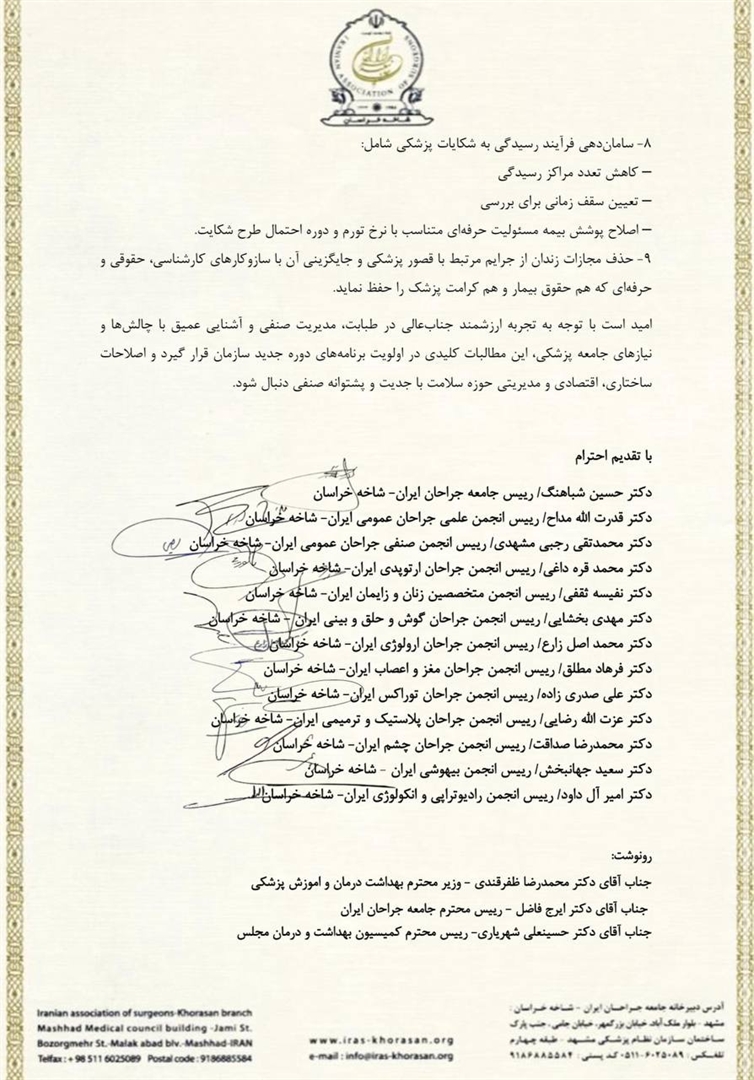 IRANIAN ASSOCIATION OF SURGEONS
شاخه خراسان
۸- سامان‌دهی فرآیند رسیدگی به شکایات پزشکی شامل:
– کاهش تعدد مراکز رسیدگی
– تعیین سقف زمانی برای بررسی
– اصلاح پوشش بیمه مسئولیت حرفه‌ای متناسب با نرخ تورم و دوره احتمال طرح شکایت.
۹- حذف مجازات زندان از جرایم مرتبط با قصور پزشکی و جایگزینی آن با سازوکارهای کارشناسی، حقوقی و
حرفه‌ای که هم حقوق بیمار و هم کرامت پزشک را حفظ نماید.
امید است با توجه به تجربه ارزشمند جناب‌عالی در طبابت، مدیریت صنفی و آشنایی عمیق با چالش‌ها و
نیازهای جامعه پزشکی، این مطالبات کلیدی در اولویت برنامه‌های دوره جدید سازمان قرار گیرد و اصلاحات
ساختاری، اقتصادی و مدیریتی حوزه سلامت با جدیت و پشتوانه صنفی دنبال شود.
با تقدیم احترام
دکتر حسین شباهنگ/ رییس جامعه جراحان ایران- شاخه خراسان
دکتر قدرت الله مداح/ رییس انجمن علمی جراحان عمومی ایران- شاخه خراسان
دکتر محمدتقی رجبی مشهدی/ رییس انجمن صنفی جراحان عمومی ایران- شاخه خراسان
دکتر محمد قره داغی/ رییس انجمن جراحان ارتوپدی ایران- شاخه خراسان
دکتر نفیسه ثقفی/ رییس انجمن متخصصین زنان و زایمان ایران- شاخه خراسان
دکتر مهدی بخشایی/ رییس انجمن جراحان گوش و حلق و بینی ایران - شاخه خراسان
دکتر محمد اصل زارع/ رییس انجمن جراحان ارولوژی ایران- شاخه خراسان
دکتر فرهاد مطلق/ رییس انجمن جراحان مغز و اعصاب ایران- شاخه خراسان
دکتر علی صدری زاده/ رییس انجمن جراحان توراکس ایران- شاخه خراسان
دکتر عزت الله رضایی/ رییس انجمن جراحان پلاستیک و ترمیمی ایران- شاخه خراسان
دکتر محمدرضا صداقت/ رییس انجمن جراحان چشم ایران- شاخه خراسان
دکتر سعید جهانبخش/ رییس انجمن بیهوشی ایران - شاخه خراسان
دکتر امیر آل داود/ رییس انجمن رادیوتراپی و انکولوژی ایران- شاخه خراسان
رونوشت:
جناب آقای دکتر محمدرضا ظفرقندی - وزیر محترم بهداشت درمان و اموزش پزشکی
جناب آقای دکتر ایرج فاضل - رییس محترم جامعه جراحان ایران
جناب آقای دکتر حسینعلی شهریاری- رییس محترم کمیسیون بهداشت و درمان مجلس
آدرس دبیرخانه جامعه جراحان ایران - شاخه خراسان:
مشهد - بلوار ملک آباد، خیابان بزرگمهر، خیابان جامی، جنب پارک
ساختمان سازمان نظام پزشکی مشهد - طبقه چهارم
تلفکس: ۶۰۲۵۰۸۹-۰۵۱۱ کد پستی: ۹۱۸۶۸۸۵۵۸۴
www.iras-khorasan.org
e-mail: info@iras-khorasan.org
Iranian association of surgeons-Khorasan branch
Mashhad Medical council building -Jami St.
Bozorgmehr St.-Malak abad blv.-Mashhad-IRAN
Telfax: + 98 511 6025089 Postal code: 9186885584